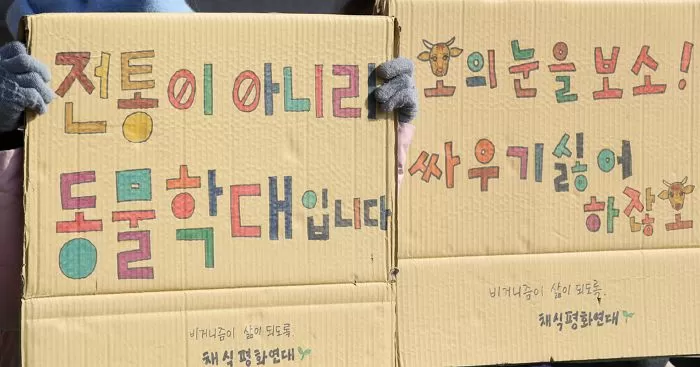 전통이 아니라
동물학대입니다
비거니즘이 삶이 되도록
채식평화연대
소의 눈을 보소!
싸우기 싫어
하잖소
비거니즘이 삶이 되도록.
채식평화연대